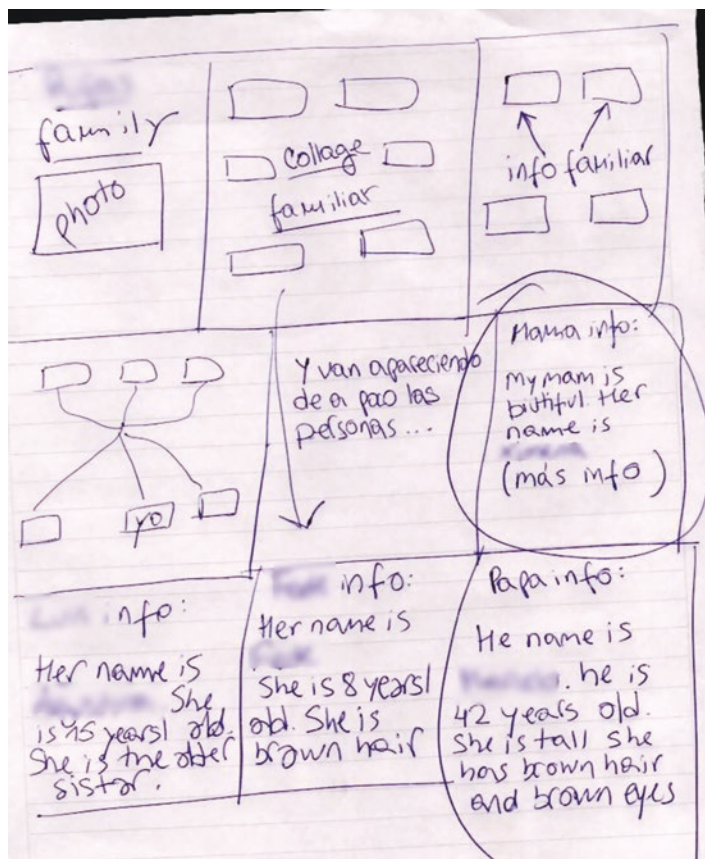 family
photo
collage
familiar
info familiar
yo
Y van apareciendo
de a poco las
personas...
Mama info:
my mam is
biutiful. Her
name is
(más info)
info:
Her name is
She
is 15 years old.
She is the older
sister.
info:
Her name is
She is 8 years
old. She is
brown hair
Papa info:
He name is
. he is
42 years old.
She is tall She
has brown hair
and brown eyes